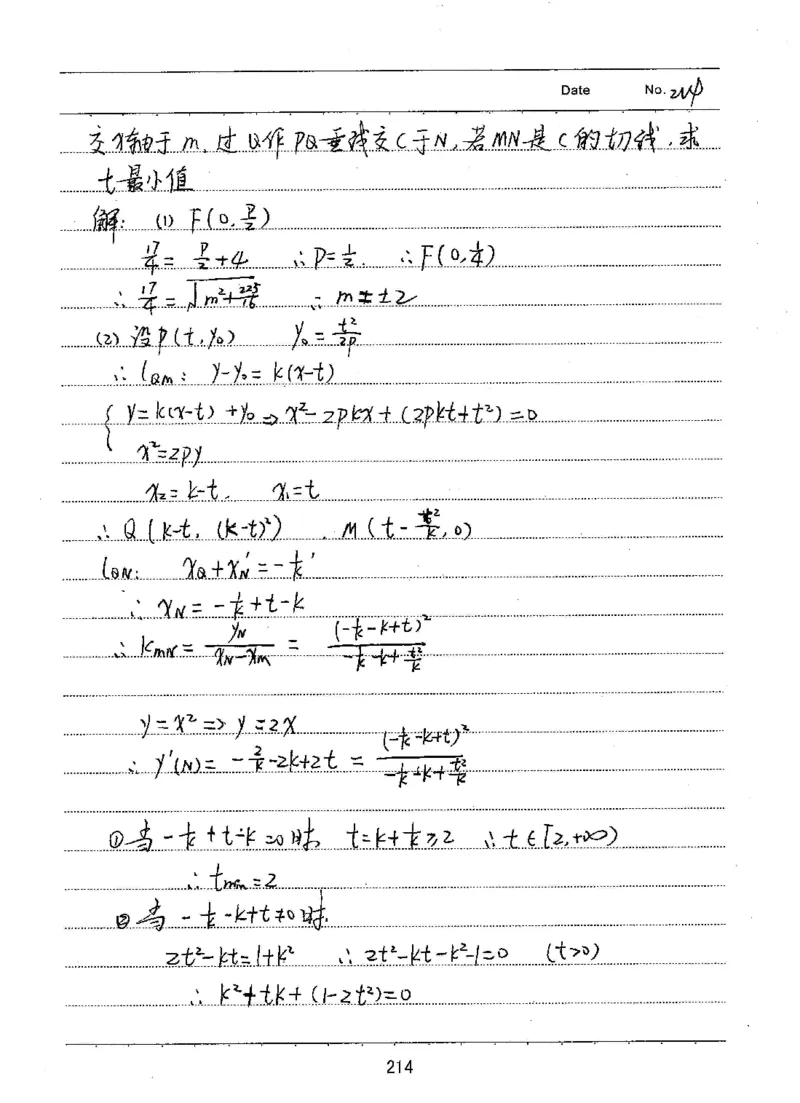 Date No. 214
交x轴于m,过Q作PQ垂线交C于N,若MN是C的切线,求
t最小值
解: (1) F(0,P/2)
17/4 = P/2+4 ∴P=1/2. ∴F(0,1/4)
∴ 17/4 = √(m²+225/16) ∴ m=±2
(2) 设P(t,y₀) y₀=t²/2P
∴ l_QM: y-y₀=k(x-t)
{ y=k(x-t)+y₀ ⇒ x²-2pkx+(2pkt+t²)=0
x²=2py
x₂=k-t, x₁=t
∴ Q(k-t, (k-t)²) , M(t-t²/k, 0)
l_QN: x_Q+x_N'=-1/k'
∴ x_N=-1/k+t-k
∴ k_MN = y_N/(x_N-x_M) = (-1/k-k+t)²/(-1/k-k+t²/k)
y=x² => y=2x
∴ y'(N)=-2/k-2k+2t = (-1/k-k+t)²/(-1/k-k+t²/k)
① 当-1/k+t-k=0时, t=k+1/k≥2 ∴t∈[2,+∞)
∴ tmin=2
② 当-1/k-k+t≠0时.
2t²-kt=1+k² ∴ 2t²-kt-k²-1=0 (t>0)
∴ k²+tk+(1-2t²)=0
214